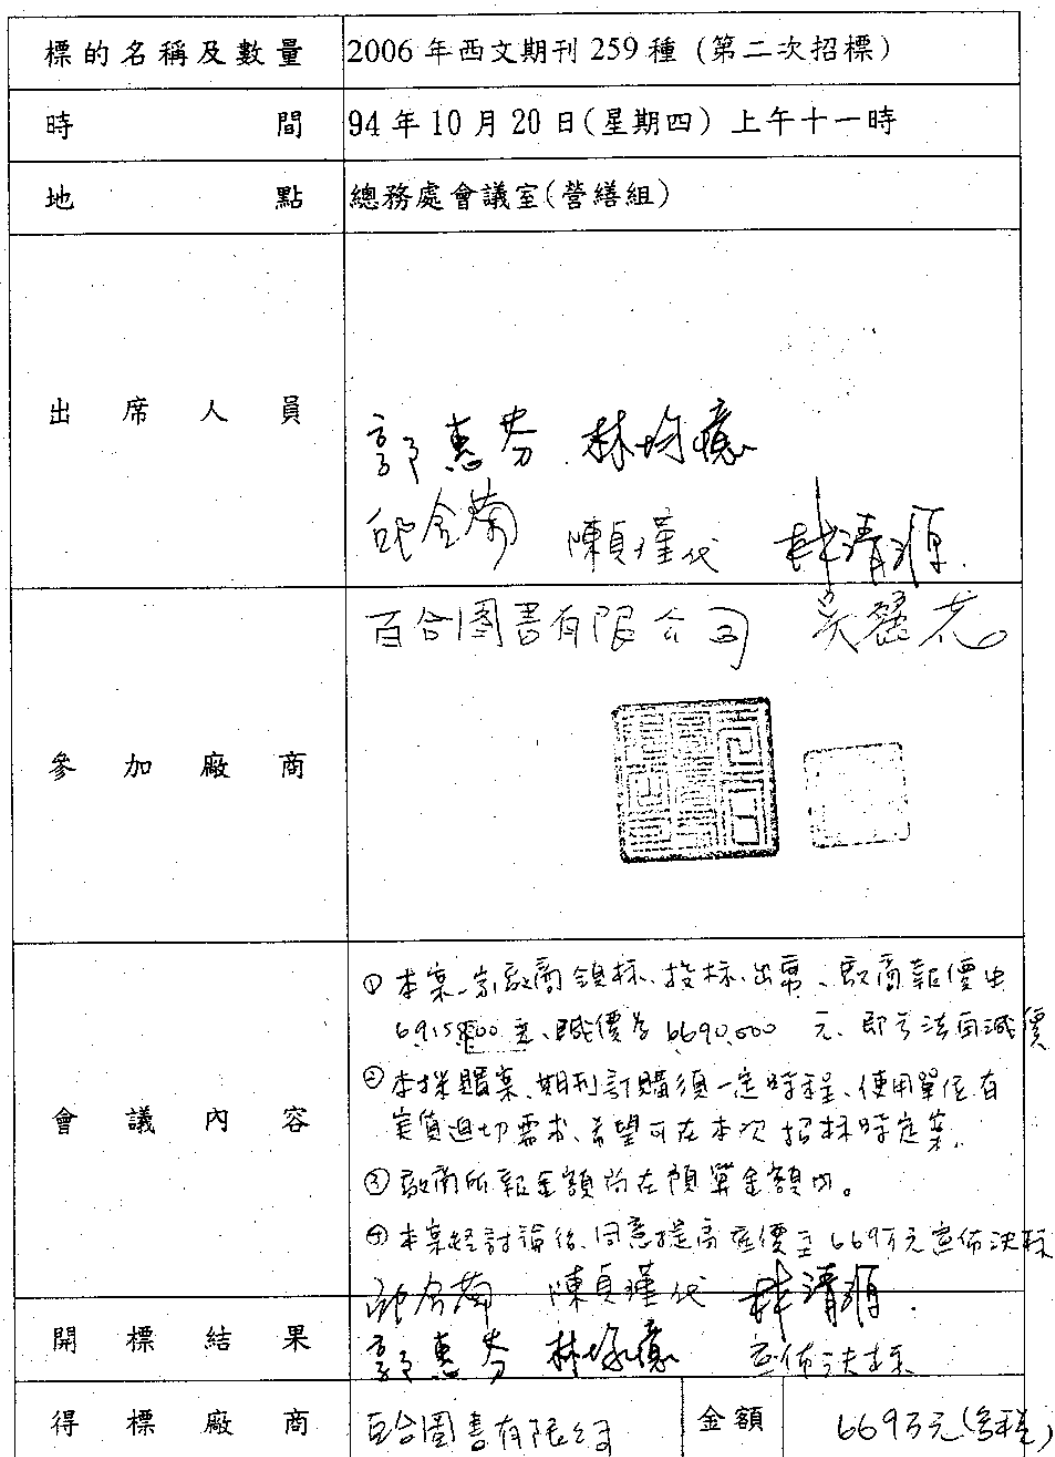 標的名稱及數量 2006年西文期刊259種(第二次招標)
時間 94年10月20日(星期四)上午十一時
地點 總務處會議室(營繕組)
出席人員
郭惠芬 林
陳貞瑾代 林清源
百合图書有限公司 吳麗花
參加廠商
①本案一家廠商領标、投标、出席、廠商報價由
元、減價為6690,000元、即無法再減價
②本採購案、期刊訂購須一定時程、使用單位有
會議內容
實質迫切需求、希望可在本次招标時定案.
③廠商所報金額尚在預算金額內。
④本案經討論後、同意提高底價至669万元宣佈決标
陳貞瑾代 林清源
開標結果
郭惠芬 林 宣佈決标
得標廠商 百合图書有限公司 金額 669万元(含稅)